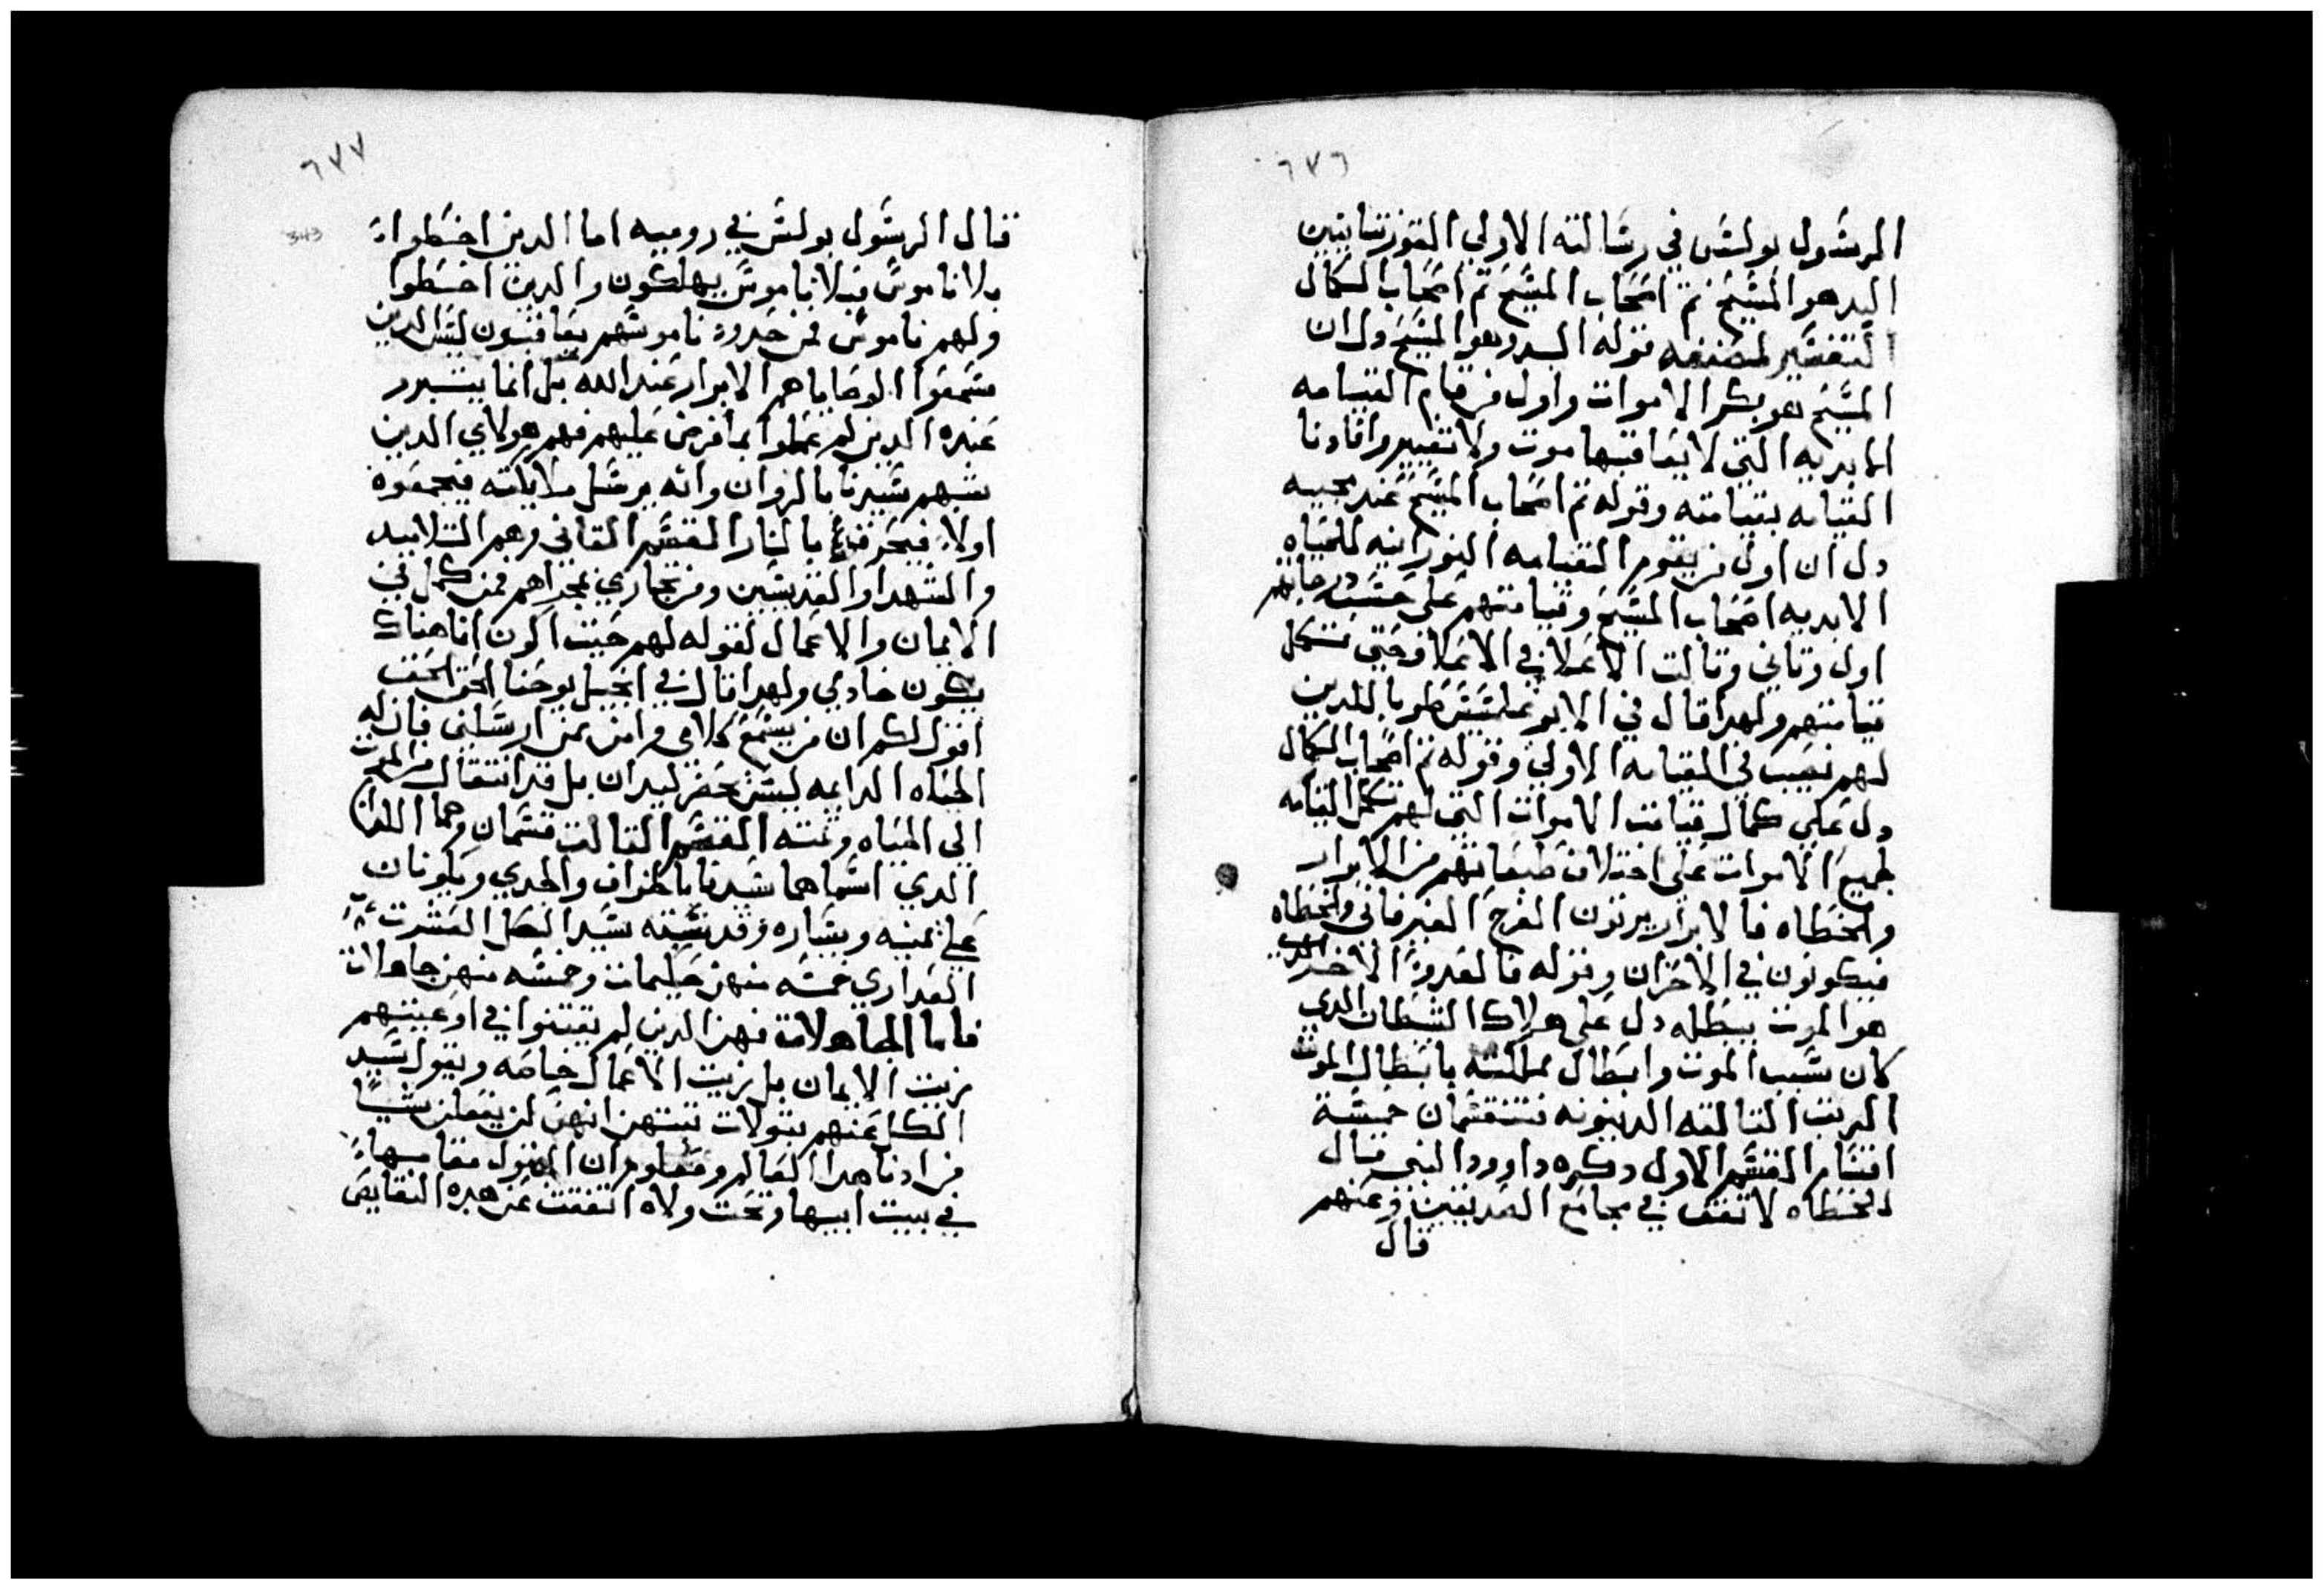 ٦٧٦
الرسول بولس في رسالته الاولي القورنتانيين
البدهو المسيح تم اصحاب المسيح تم اصحاب الكمال
التفسير لمصنفه قوله البدو هوا المسيح دل ان
المسيح هو بكر الاموات واول من قام القيامه
الابديه التي لا يعاقبها موت ولا تغيير وافادنا
القيامه بقيامته وقوله تم اصحاب المسيح عند مجيه
دل ان اول من يقوم القيامه النورانيه للحياه
الابديه اصحاب المسيح وقيامتهم علي حسب درجاتهم
اول وتاني وتالت الاعلا في الاعلا وحتي تتكمل
قيامتهم ولهدا قال في الابو غلمسيس طوبا للدين
لهم نصيب في القيامه الاولي وقوله تم اصحاب الكمال
دل علي كمال قيامت الاموات التي لهم تكمل القيامه
لجميع الاموات علي اختلاف طبقاتهم من الابرار
والخطاه فالابرار يرتون الفرح الغير فاني والخطاه
فيكونون في الاحزان وقوله فالعدو الاخير الدي
هو الموت يبطله دل علي هلاك الشيطان الدي
كان سبب الموت وابطال مملكته بابطال الموت
الريت التالته الدينونه فتنقسمان خمسة
اقسام القسم الاول دكره داوود النبي قال
الخطاه لا تقف في مجامع الصديقين وعنهم
قال
٦٧٧
343
قال الرسول بولس في روميه اما الدين اخطوا
بلا ناموس فبلا ناموس يهلكون والدين اخطوا
ولهم ناموس فمن حدود ناموسهم يعاقبون ليس الدين
سمعوا الوصايا هم الابرار عند الله بل انما يتبرر
عنده الدين لم عملوا بما فرض عليهم فهم هولاي الدين
شبههم سيدنا بالزوان وانه يرسل ملايكته فيجمعوه
اولا فيحرقوه بالنار القسم التاني وهم التلاميد
والشهدا والقديسين ومن تجاري بمجراهم فمن كمل في
الايمان والاعمال لقوله لهم حيت اكون انا هناك
يكون خادمي ولهدا قال في انجيل يوحنا الحق الحق
اقول لكم ان من يسمع كلامي وامن بمن ارسلني فان له
الحياه الدايمه ليس يحضر ليدان بل قد انتقال من الموت
الي الحياه وعنه القسم التالت قسمان وهما اللدان
الدي اسماهما سيدنا بالخراف والجدي ويكونان
علي يمينه ويساره وقد شبه سيد الكل العشرت
العداري خمسه منهن حكيمات وخمسه منهن جاهلات
فاما الجاهلات فهن الدين لم يقتنوا في اوعيتهم
زيت الايمان بل زيت الاعمال خاصه ويقول سيد
الكل عنهم بتولات تنتهن انهن لن يفعلن شيا
من ادنا هدا العالم ومعلوم ان البتول مقامها
في بيت ابيها وتحت ولاه اتفقت عن هده النقايص